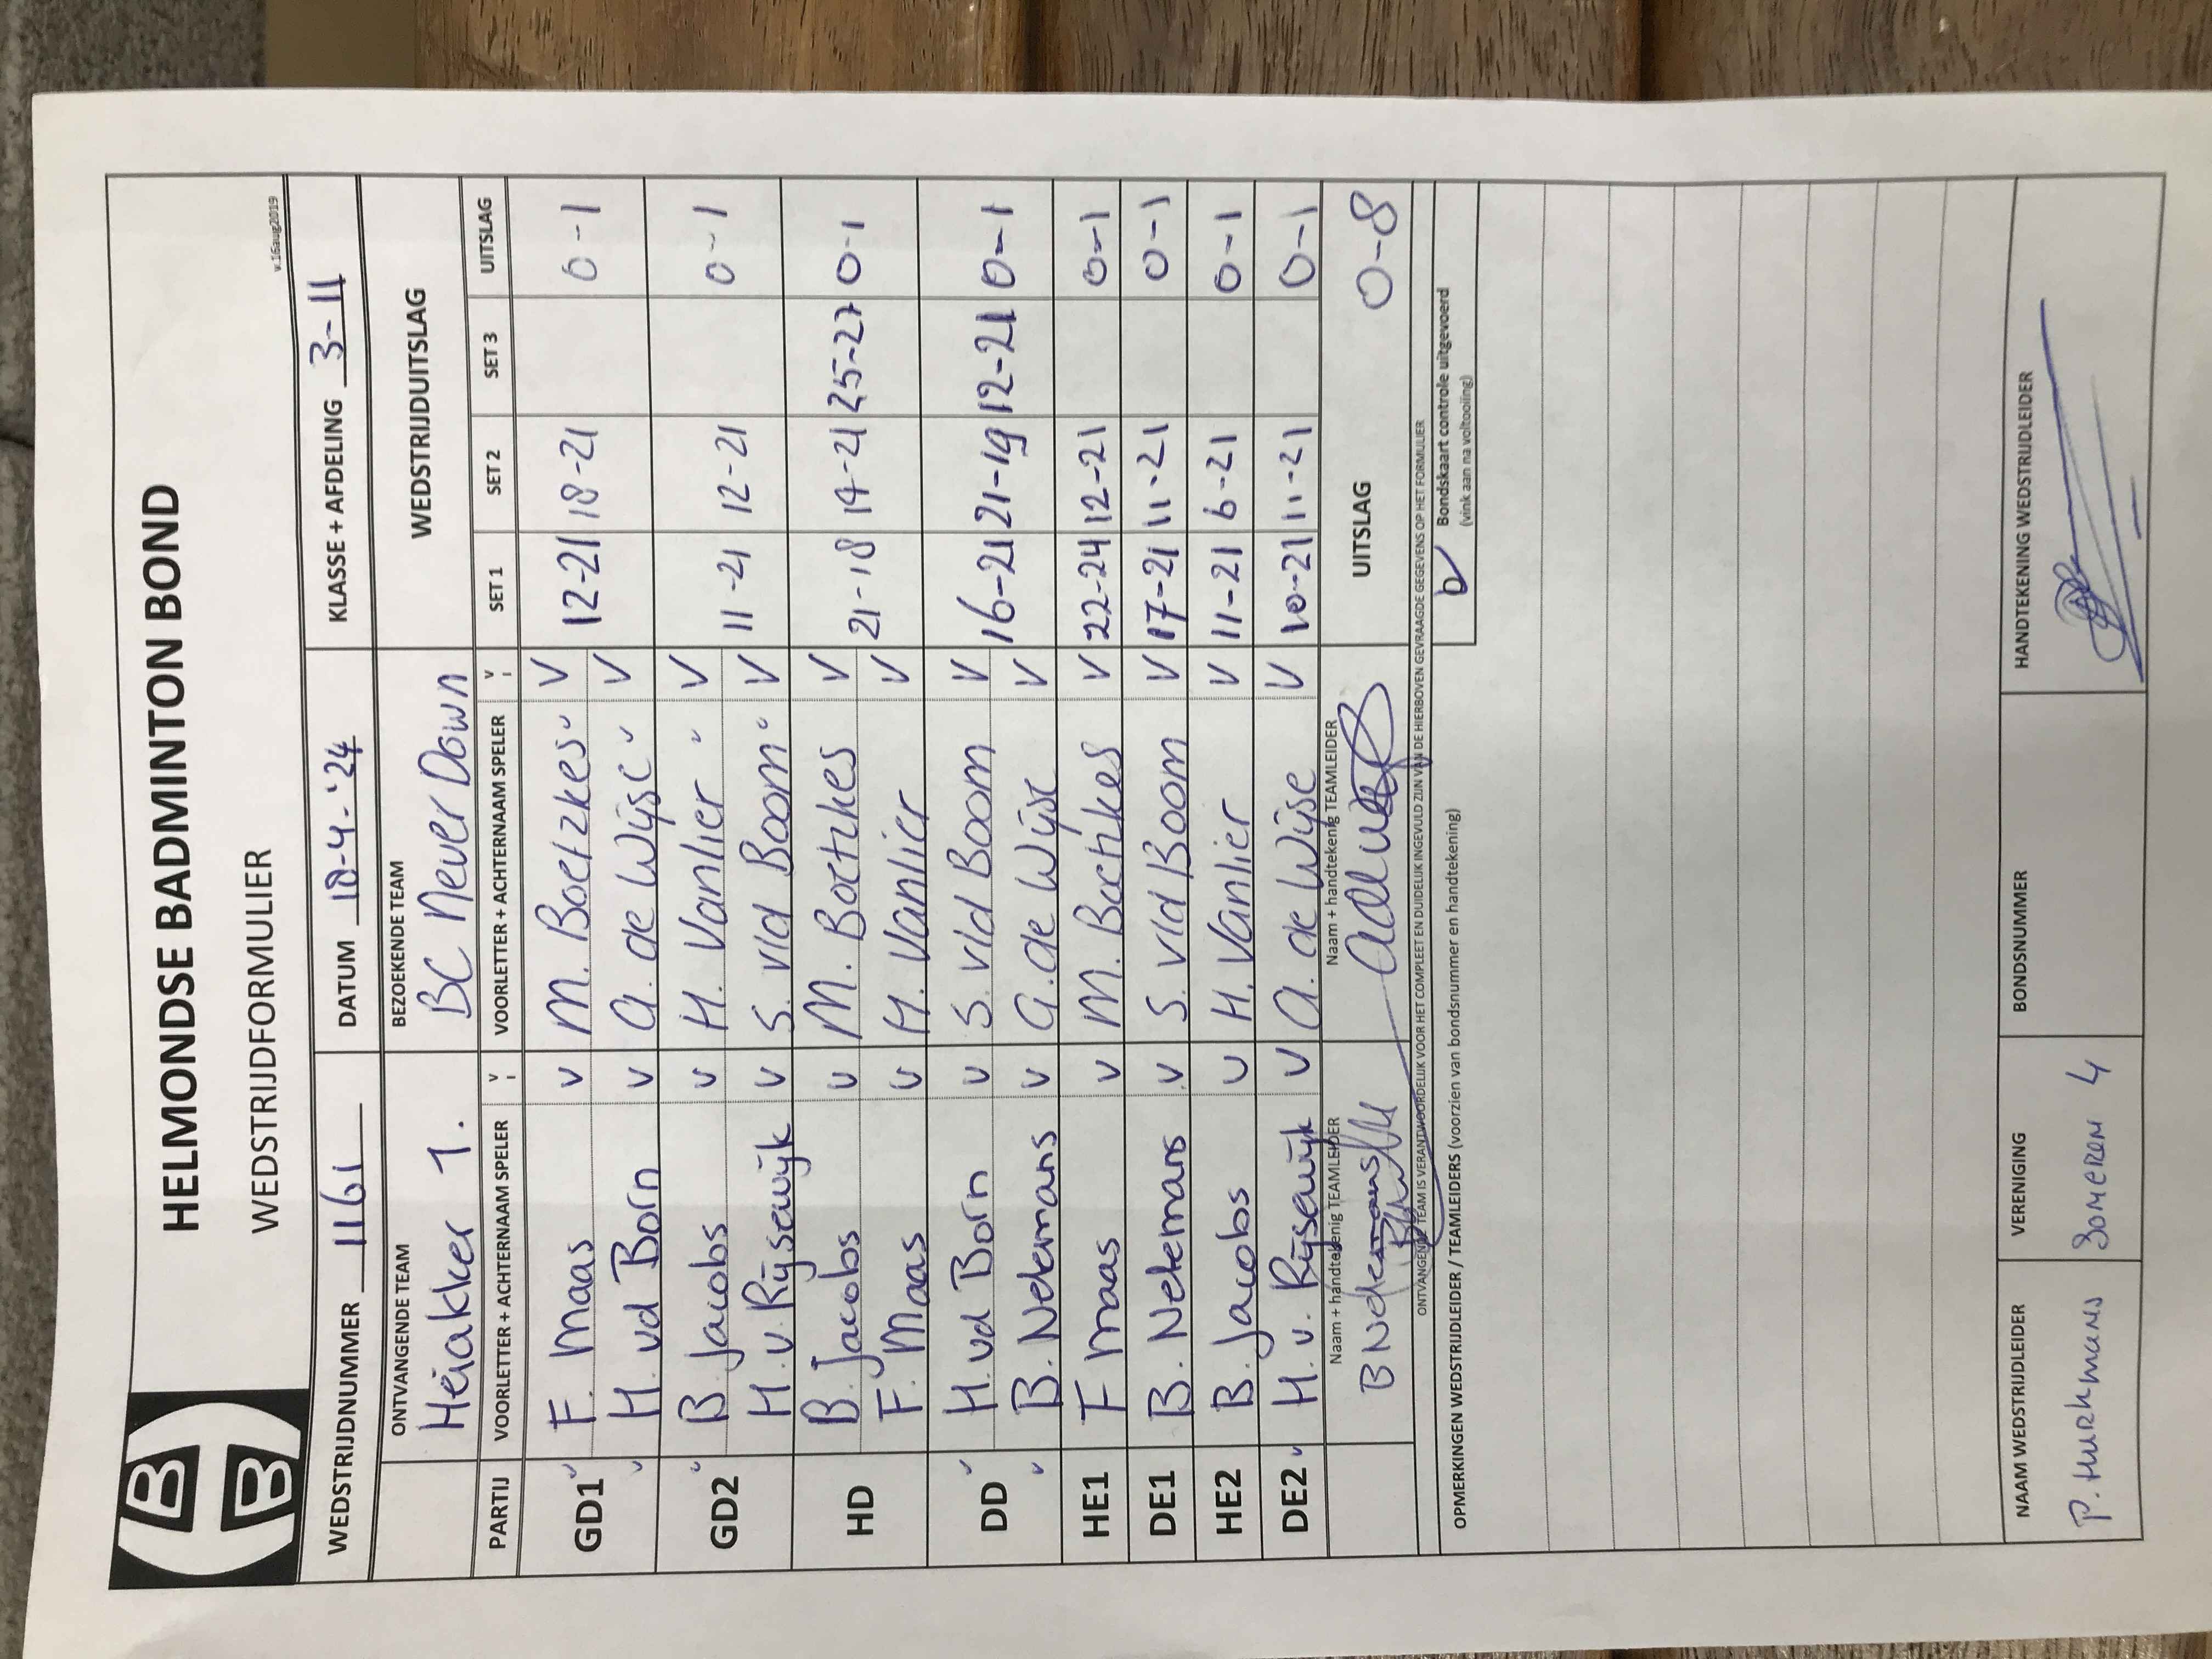 HB
BB
HELMONDSE BADMINTON BOND
WEDSTRIJDFORMULIER
v.16aug2019
WEDSTRIJDNUMMER 1161 DATUM 10-4-'24 KLASSE + AFDELING 3-11
ONTVANGENDE TEAM BEZOEKENDE TEAM WEDSTRIJDUITSLAG
Heiakker 1. BC Never Down
PARTIJ VOORLETTER + ACHTERNAAM SPELER V VOORLETTER + ACHTERNAAM SPELER V SET 1 SET 2 SET 3 UITSLAG
GD1 F. Maas v M. Boetzkes v 12-21 18-21 0-1
H. vd Born v A. de Wijse v
GD2 B. Jacobs v H. Vanlier v 11-21 12-21 0-1
H. v. Rijsewijk v S. v/d Boom v
HD B. Jacobs v M. Boetzkes v 21-18 14-21 25-27 0-1
F. Maas v H. Vanlier v
DD H. vd Born v S. v/d Boom v 16-21 21-19 12-21 0-1
B. Nekemans v A. de Wijse v
HE1 F Maas v M. Boetzkes v 22-24 12-21 0-1
DE1 B. Nekemans v S. v/d Boom v 17-21 11-21 0-1
HE2 B. Jacobs v H. Vanlier v 11-21 6-21 0-1
DE2 H. v. Rijsewijk v A. de Wijse v 10-21 11-21 0-1
Naam + handtekenig TEAMLEIDER Naam + handtekenig TEAMLEIDER UITSLAG 0-8
ONTVANGENDE TEAM IS VERANTWOORDELIJK VOOR HET COMPLEET EN DUIDELIJK INGEVULD ZIJN VAN DE HIERBOVEN GEVRAAGDE GEGEVENS OP HET FORMULIER
OPMERKINGEN WEDSTRIJDLEIDER / TEAMLEIDERS (voorzien van bondsnummer en handtekening)
Bondskaart controle uitgevoerd
(vink aan na voltooiing)
NAAM WEDSTRIJDLEIDER VERENIGING BONDSNUMMER HANDTEKENING WEDSTRIJDLEIDER
P. Hurkmans Someren 4